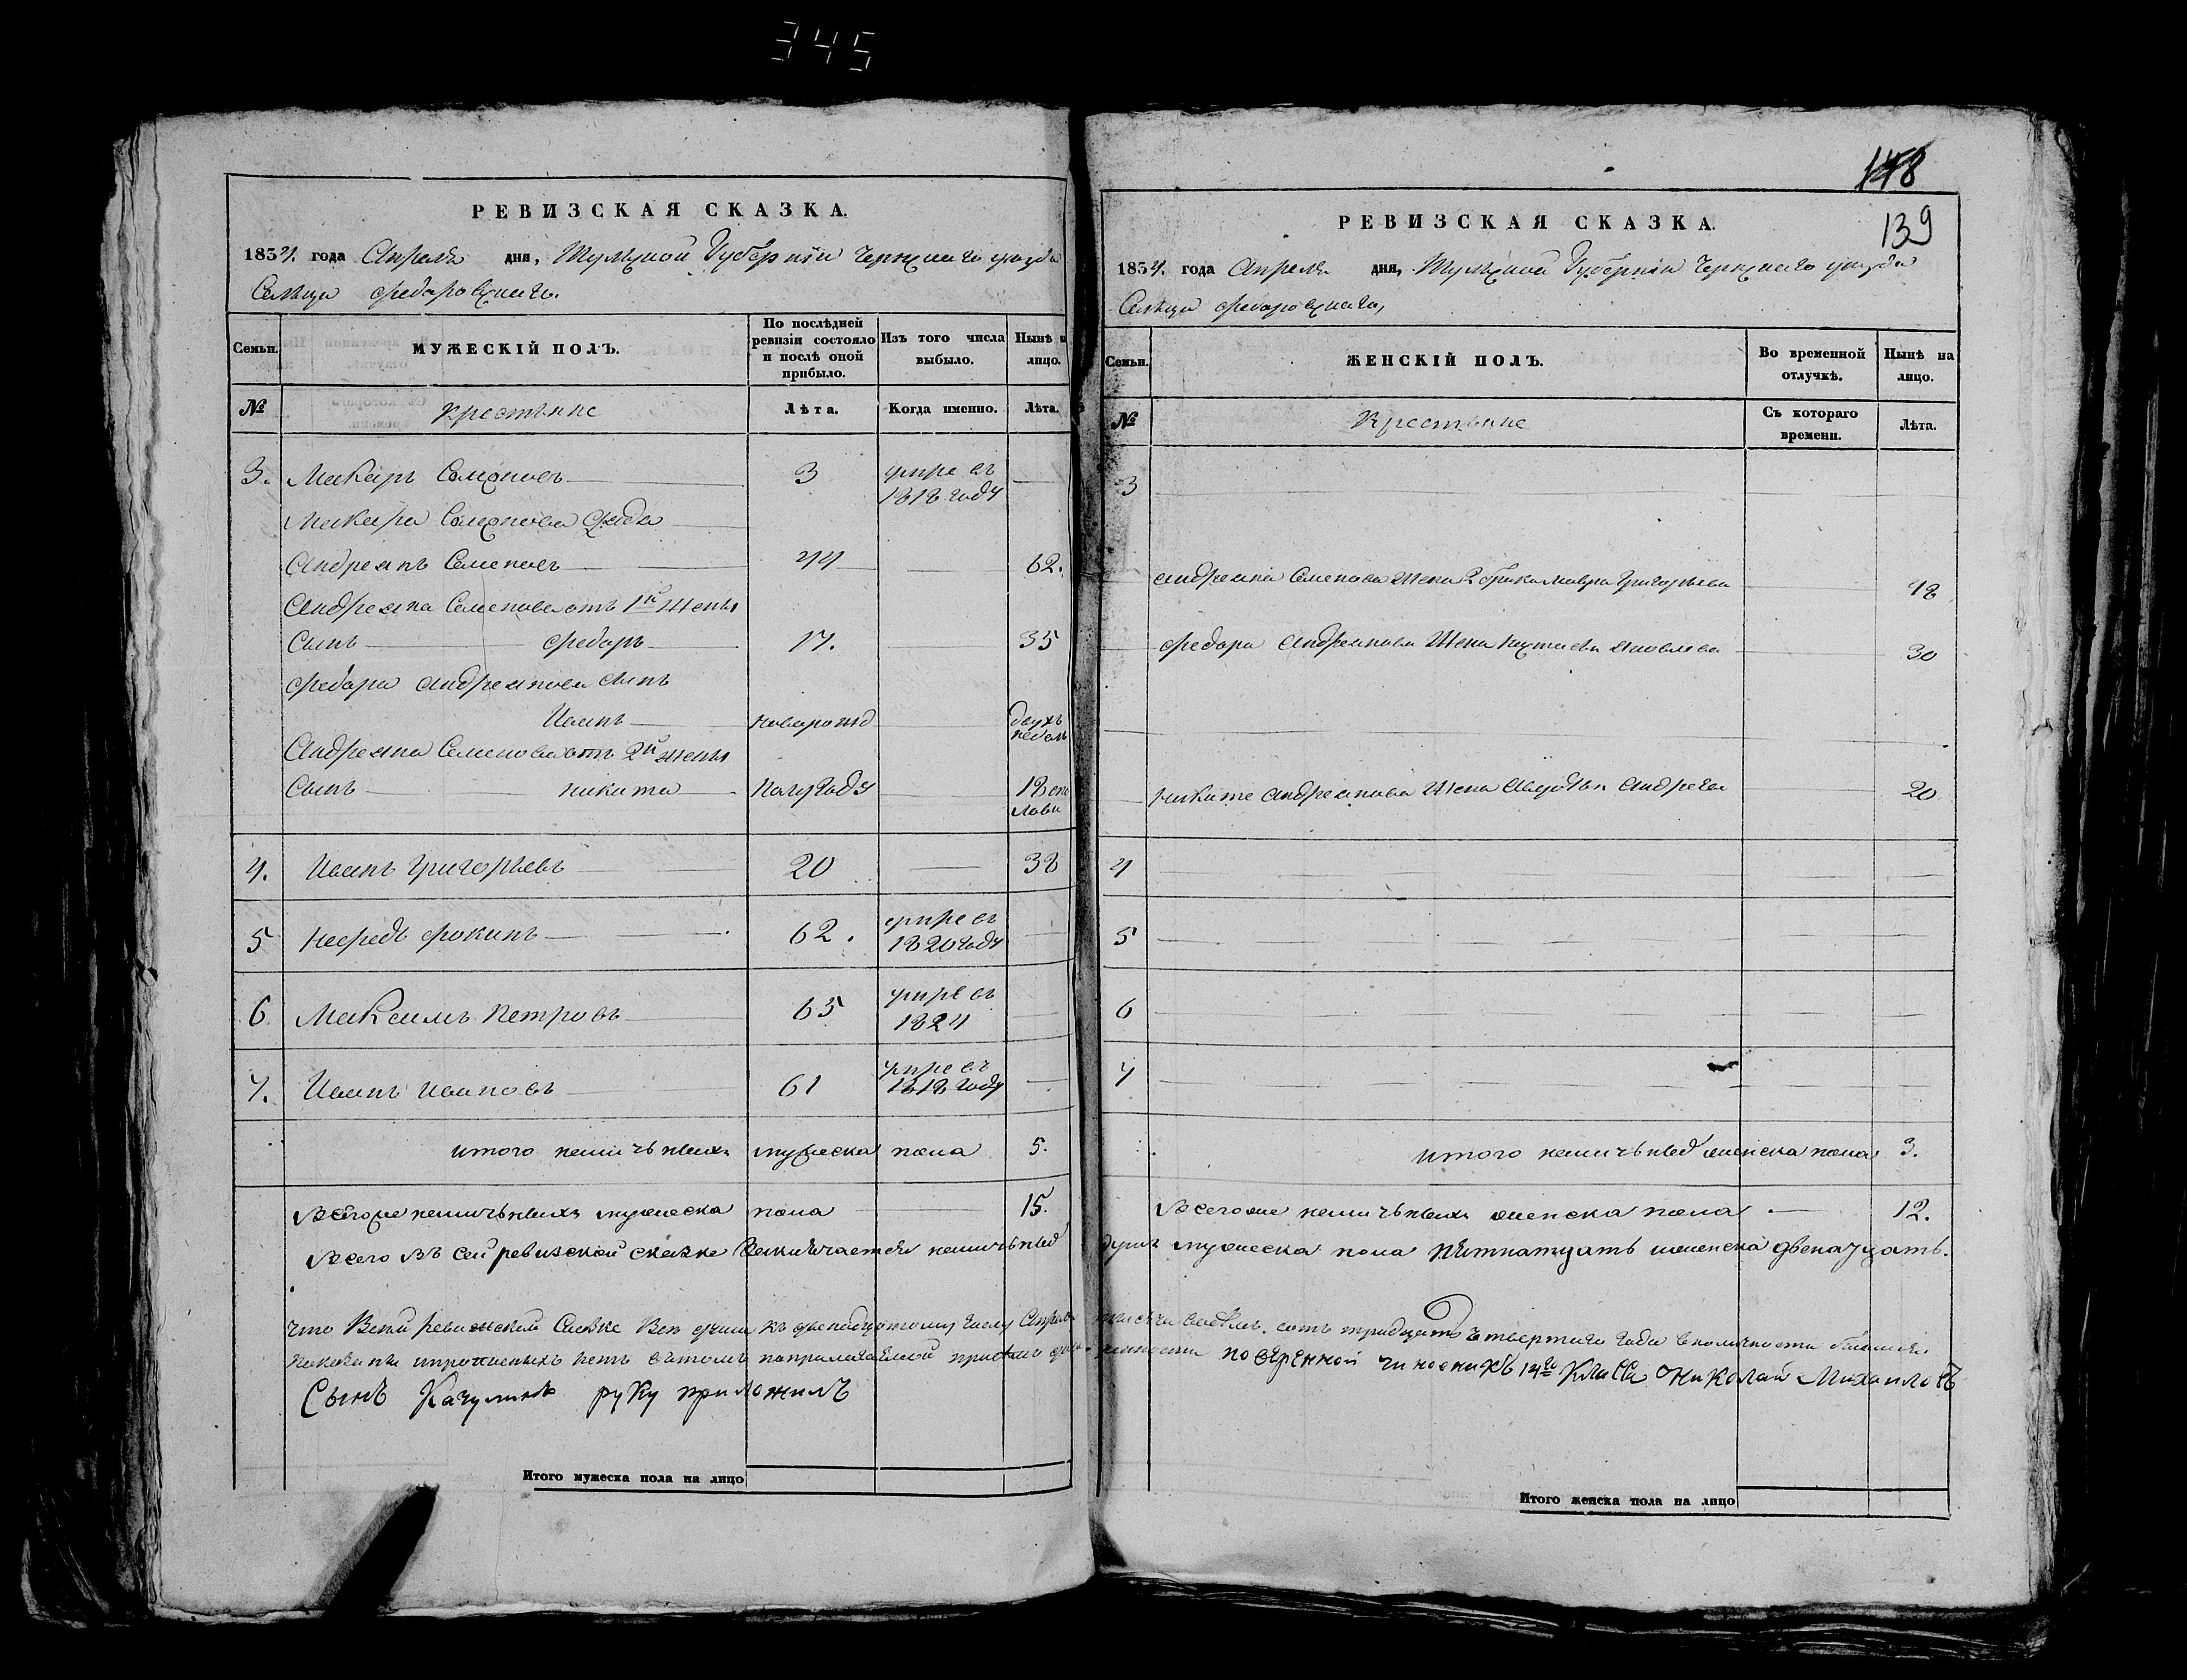 345
РЕВИЗСКАЯ СКАЗКА.
1834. года Апреля дня, Тульской Губернии Чернскаго уезда
Сельца Федоровскаго.
Семьи.
МУЖЕСКІЙ ПОЛЪ.
По послѣдней ревизіи состояло и послѣ оной прибыло.
Изъ того числа выбыло.
Нынѣ на лицо.
№
Крестьяне
Лѣта.
Когда именно.
Лѣта.
3. Макаръ 3 умре въ 1818 году
Макара дядя
Андреянъ Семеновъ 44 62.
Андреяна Семенова отъ 1й жены
Сынъ Федоръ 17. 35
Федора Андреянова сынъ
Иванъ новорожд двухъ недель
Андреяна Семенова отъ 2й жены
Сынъ Никита полугоду 18
4. Иванъ Григорьевъ 20 38
5 Нефедъ Фокинъ 62. умре въ 1820 году
6 Максимъ Петровъ 65 умре въ 1824
7. Иванъ Ивановъ 61 умре въ 1818 году
итого наличныхъ мужеска пола 5.
Всегоже наличныхъ мужеска пола 15.
Всего въ сей ревизской сказке заключается наличныхъ
Сынъ Качулинъ руку приложилъ
Итого мужеска пола на лицо
148
139
РЕВИЗСКАЯ СКАЗКА.
1834. года Апреля дня, Тульской Губернии Чернскаго уезда
Сельца Федоровскаго,
Семьи.
ЖЕНСКІЙ ПОЛЪ.
Во временной отлучкѣ.
Нынѣ на лицо.
№
Крестьяне
Съ котораго времени.
Лѣта.
3
Андреяна Семенова жена 2 брака Мавра Григорьева 48
Федора Андреянова жена Яковлева 30
Никиты Андреянова жена Авдотья Андреева 20
4
5
6
7
итого наличныхъ женска пола 3.
Всегоже наличныхъ женска пола 12.
душъ мужеска пола пятнатцать женска двенатцать.
поверенной чиновникъ 14го класса Николай Михайловъ
Итого женска пола на лицо